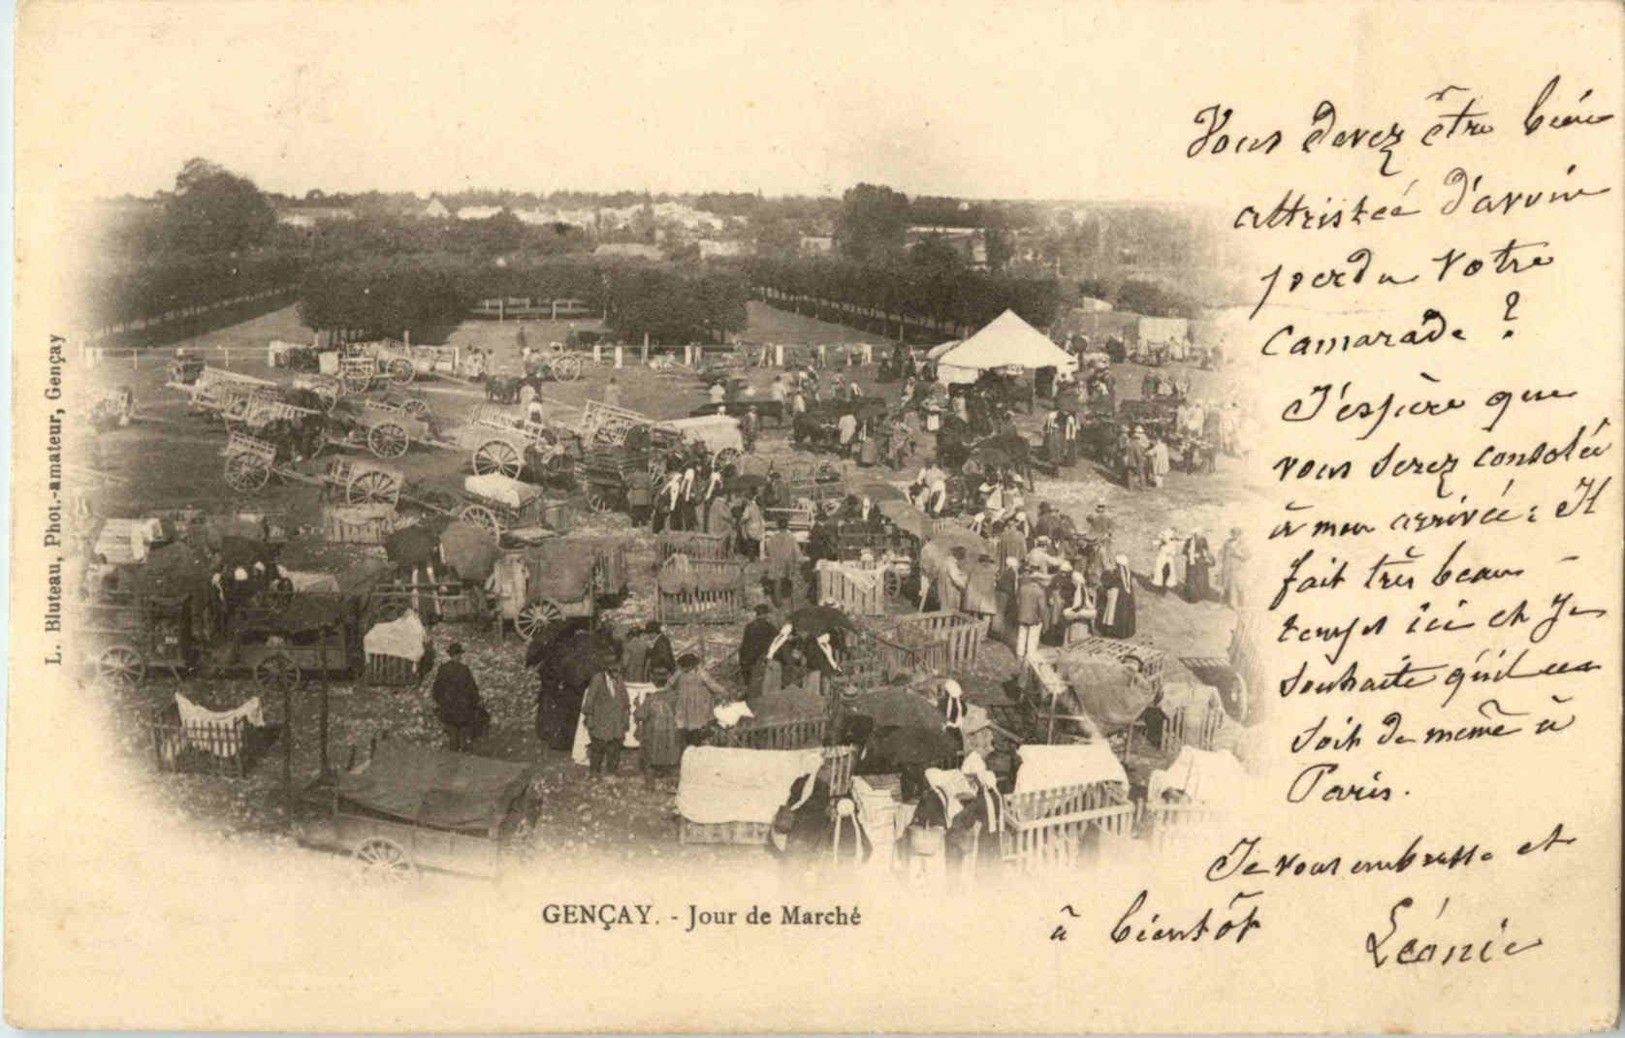 Vous devez être bien
attristée d'avoir
perdu votre
camarade ?
J'espère que
vous serez consolée
à mon arrivée : Il
fait très beau
temps ici et je
souhaite qu'il en
soit de même à
Paris.
Je vous embrasse et
à bientôt Léonie
GENÇAY. - Jour de Marché
L. Bluteau, Phot.-amateur, Gençay